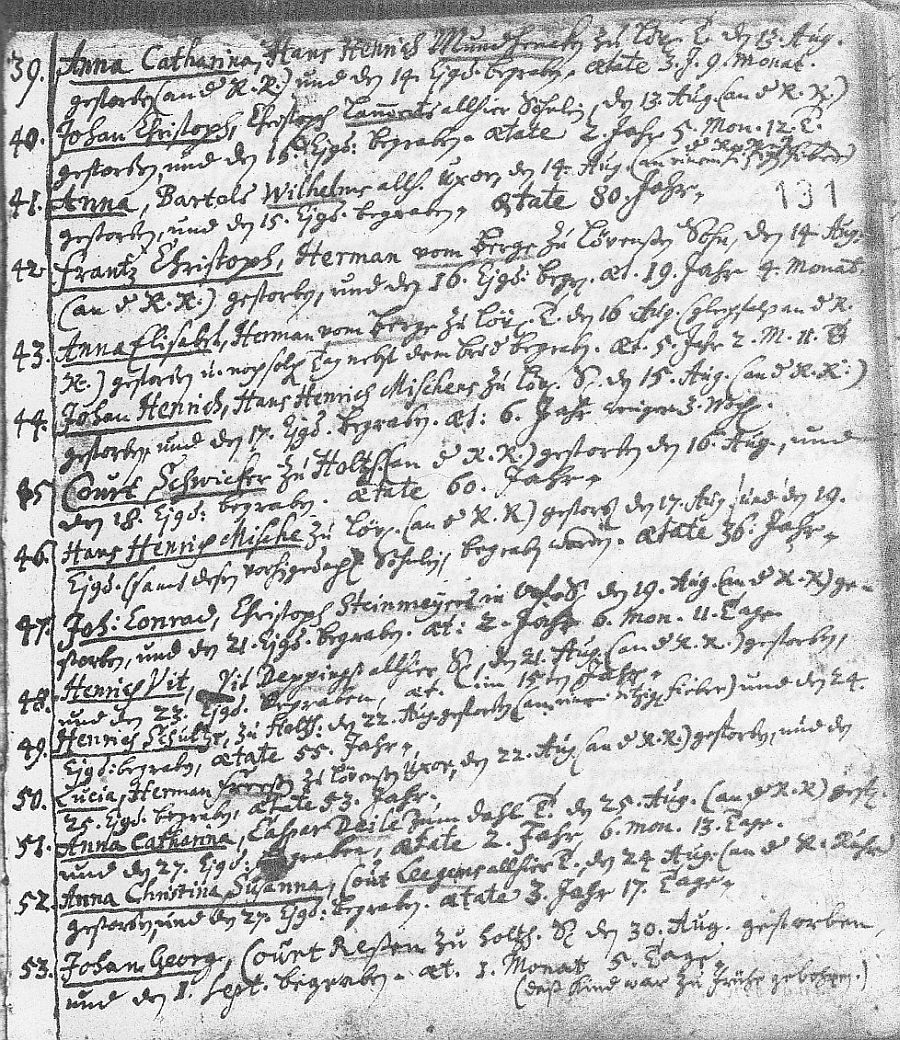 39. Anna Catharina, Hans Henrich Mundhencken zu Löv. T. den 13. Aug.
gestorben (an d R. R.) und den 14. Ejqd. begraben. ætate 3. J. 9. Monat.
40. Johan Christoph, Christoph allhier Söhnlein, den 13 Aug. (an d R. R.)
gestorben, und den 15. Ejqd: begraben. ætate 2 Jahr 5. Mon. 12. T.
41. Anna, Bartels Wilhelms allh. Uxor, den 14. Aug. (an einem
gestorben, und den 15. Ejqd. begraben, ætate 80. Jahr.
131
42. Frantz Christoph, Herman vom Berge zu Lövensen Sohn, den 14. Aug.
(an d R. R.) gestorben, und den 16. Ejqd: begr. æt. 19. Jahr 4. Monat.
43. Anna Elisabet, Herman vom Berge zu Löv. T. den 16 Aug. (gleichfals an d R.
R.) gestorben u. Tag nebst dem begraben. æt. 5. Jahr 2. M. 11. T
44. Johan Henrich, Hans Henrich Mischens zu Löv. S. den 15. Aug. (an d R. R.)
gestorben, und den 17. Ejqd. begraben. æt: 6. Jahr weniger 3. Woch.
45 Court Schwieker zu Holtz. (an d R. R.) gestorben den 16. Aug., und
den 18. Ejqd: begraben. ætate 60. Jahr.
46. Hans Henrich Mische zu Löv. (an d R. R) gestorb. den 17. Aug. und den 19.
Ejqd. (samt desen vorhigedacht. Söhnlein) begraben worden. ætate 36. Jahr.
47. Joh: Conrad, Christoph Steinmeyers in S. den 19. Aug. (an d R. R) ge-
storben, und den 21. Ejqd: begraben. æt: 2. Jahr 6. Mon. 11. Tage
48. Henrich Vit, Vit Deppings allhier S., den 21. Aug. (an d R. R.) gestorben,
und den 23. Ejqd. begraben, æt. im 15ten Jahr.
49. Henrich Schultze, zu Holtz: den 22. Aug. gestorben (an einem hitzig. Fieber) und den 24.
Ejqd: begraben, ætate 55. Jahr.
50. Lucia, Herman zu Lövensen Uxor, den 22. Aug. (an d R. R.) gestorben, und den
25. Ejqd. begraben, ætate 53. Jahr.
51. Anna Catharina, Caspar Deile zum Dahl T. den 25. Aug. (an d R. R) gest.
und den 27. Ejqd: begraben, ætate 2. Jahr 6. Mon. 13. Tage.
52. Anna Christina Susanna, Court Leegers allhier T., den 24 Aug. (an d R. Ruhr
gestorben, und den 27. Ejqd: begraben. ætate 3. Jahr 17. Tage.
53. Johan Georg, Court Resten zu Holtz. S. den 30. Aug. gestorben,
und den 1. Sept. begraben. æt. 1. Monat 5. Tage.
(dass Kind war zu frühe gebohren.)